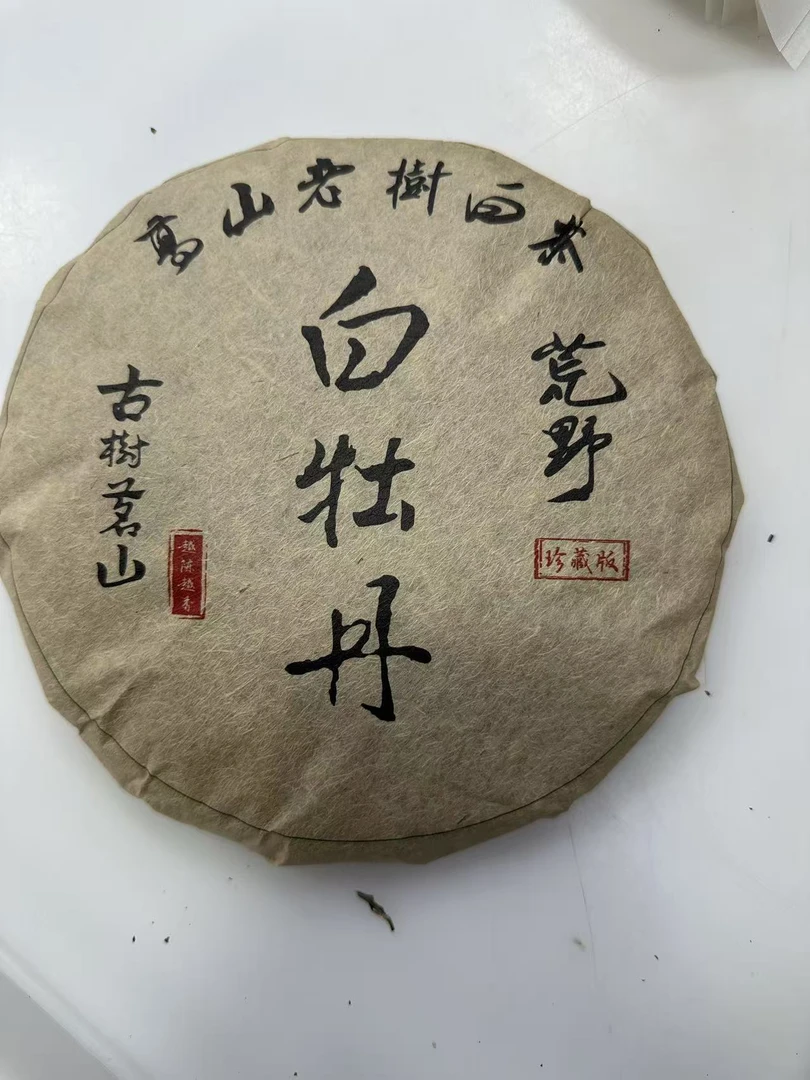 高山老樹白茶
荒野
珍藏版
白牡丹
古樹茗山
越陈越香